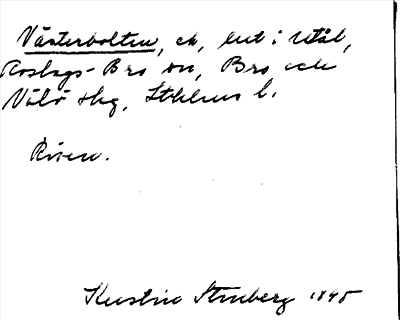 Västerbolten, ek, but i Utål,
Roslags-Bro sn, Bro och
Vätö skg, Sthlms l.
Riven.
Kerstin Struberg 1948